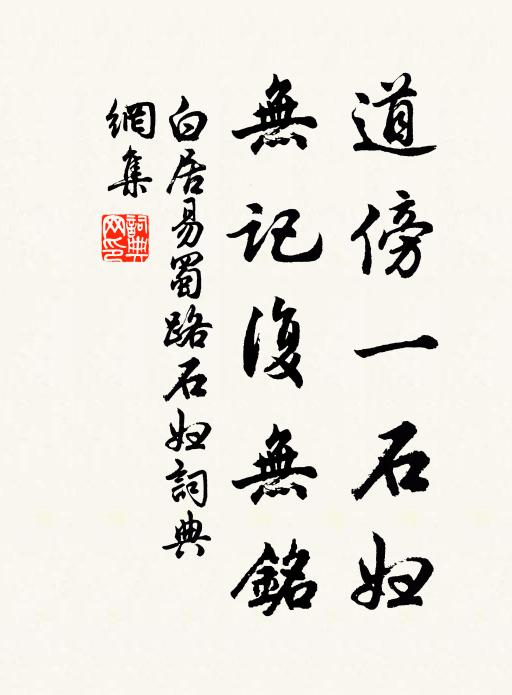 道傍一石妇
無記復無銘
白居易蜀路石妇詞典
網集
詞典网印